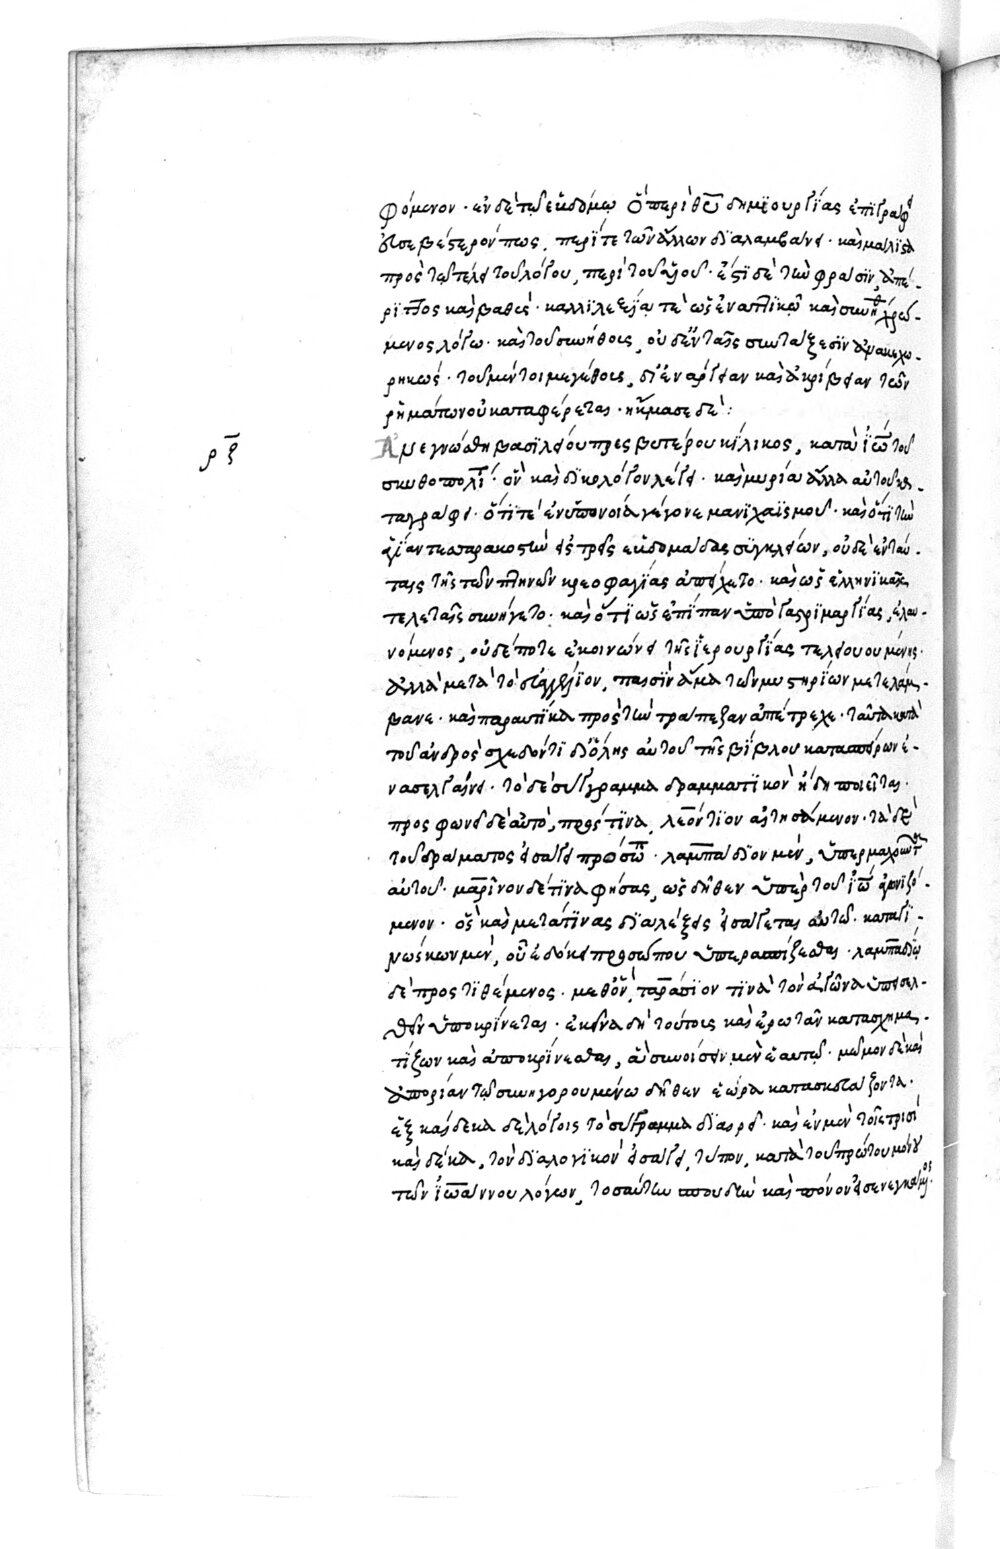 φόμενον · ἐν δὲ τῶ ἑβδόμω ὃ περὶ θεοῦ δημιουργίας ἐπιγράφει
εὐσεβέστερόν πως, περί τε τῶν ἄλλων διαλαμβάνει · καὶ μάλιστα
πρὸς τῶ τέλει τοῦ λόγου, περὶ τοῦ υἱοῦ · ἔστι δὲ τὴν φράσιν, ἀπέ-
ριττος καὶ βαθὺς · καλλιλεξία τὲ ὡς ἐν ἀττικῶ καὶ συνήθει χρώ-
μενος λόγω · καὶ τοῦ συνήθους, οὐδ' ἐν ταῖς συντάξεσιν ἀνακεχω-
ρηκώς · τοῦ μέντοι μεγέθους, δι' ἐνάργειαν καὶ ἀκρίβειαν τῶν
ῥημάτων οὐ καταφέρεται · ἤκμασε δὲ :
ρξ
Ἀνεγνώσθη βασιλείου πρεσβυτέρου κίλικος, κατὰ ἰω τοῦ
σκυθοπολι · ὃν καὶ δικολόγον λέγει · καὶ μυρία ἄλλα αὐτοῦ κα-
ταγράφει · ὅτι τὲ ἐν ὑπονοία γέγονε μανιχαϊσμοῦ · καὶ ὅτι τὴν
ἁγίαν τεσσαρακοστὴν εἰς τρεῖς ἑβδομάδας συγκλείων, οὐδὲ ἐν ταύ-
ταις τῆς τῶν πτηνῶν κρεοφαγίας ἀπείχετο · καὶ ὡς ἑλληνικαῖς
τελεταῖς συνήγετο · καὶ ὅτι ὡς ἐπίπαν ὑπὸ γαστριμαργίας, ἐλαυ-
νόμενος, οὐδέποτε ἐκοινώνει τῆς ἱερουργίας τελειουμένης ·
ἀλλὰ μετὰ τὸ εὐαγγέλιον, παισὶν ἅμα τῶν μυστηρίων μετελάμ-
βανε · καὶ παραυτίκα πρὸς τὴν τράπεζαν ἀπέτρεχε · ταῦτα κατὰ
τοῦ ἀνδρὸς σχεδόν τι δι' ὅλης αὐτοῦ τῆς βίβλου κατασπείρων ἐ-
νασελγαίνει · τὸ δὲ σύγγραμμα δραμματικὸν ἤδη ποιεῖται ·
προσφωνεῖ δὲ αὐτὸ, πρός τινα, λεόντιον αἰτησάμενον · τὰ δὲ
τοῦ δράματος εἰσάγει πρόσωπα · λαμπάδιον μὲν, ὑπερμαχοῦντα
αὐτοῦ · μαρῖνον δέ τινα φήσας, ὡς δῆθεν ὑπὲρ τοῦ ἰω ἀγωνιζό-
μενον · ὃς καὶ μετά τινας διαλέξεις εἰσάγεται αὐτῶ · καταγι-
νώσκων μὲν, οὗ ἐδόκει προσώπου ὑπερασπίζεσθαι · λαμπαδίω
δὲ προστιθέμενος · μεθ' ὃν, ταράσιον τινὰ τὸν ἀγῶνα ὑπεισελ-
θεῖν ὑποκρίνεται · ἐκεῖνα δὴ τούτοις καὶ ἐρωτᾶν κατασχημα-
τίζων καὶ ἀποκρίνεσθαι, ἃ συνοίσειν μὲν ἑαυτῶ · μῶμον δὲ καὶ
ἀπορίαν τῶ συνηγορουμένω δῆθεν ἑώρα κατασκευάζοντα ·
ἓξ καὶ δέκα δὲ λόγοις τὸ σύγγραμμα διαιρεῖ · καὶ ἐν μὲν τοῖς τρισὶ
καὶ δέκα, τὸν διαλογικὸν εἰσάγει, τύπον, κατὰ τοῦ πρώτου μόνου
τῶν ἰωάννου λόγων, τοσαύτην σπουδὴν καὶ πόνον εἰσενεγκάμενος ·